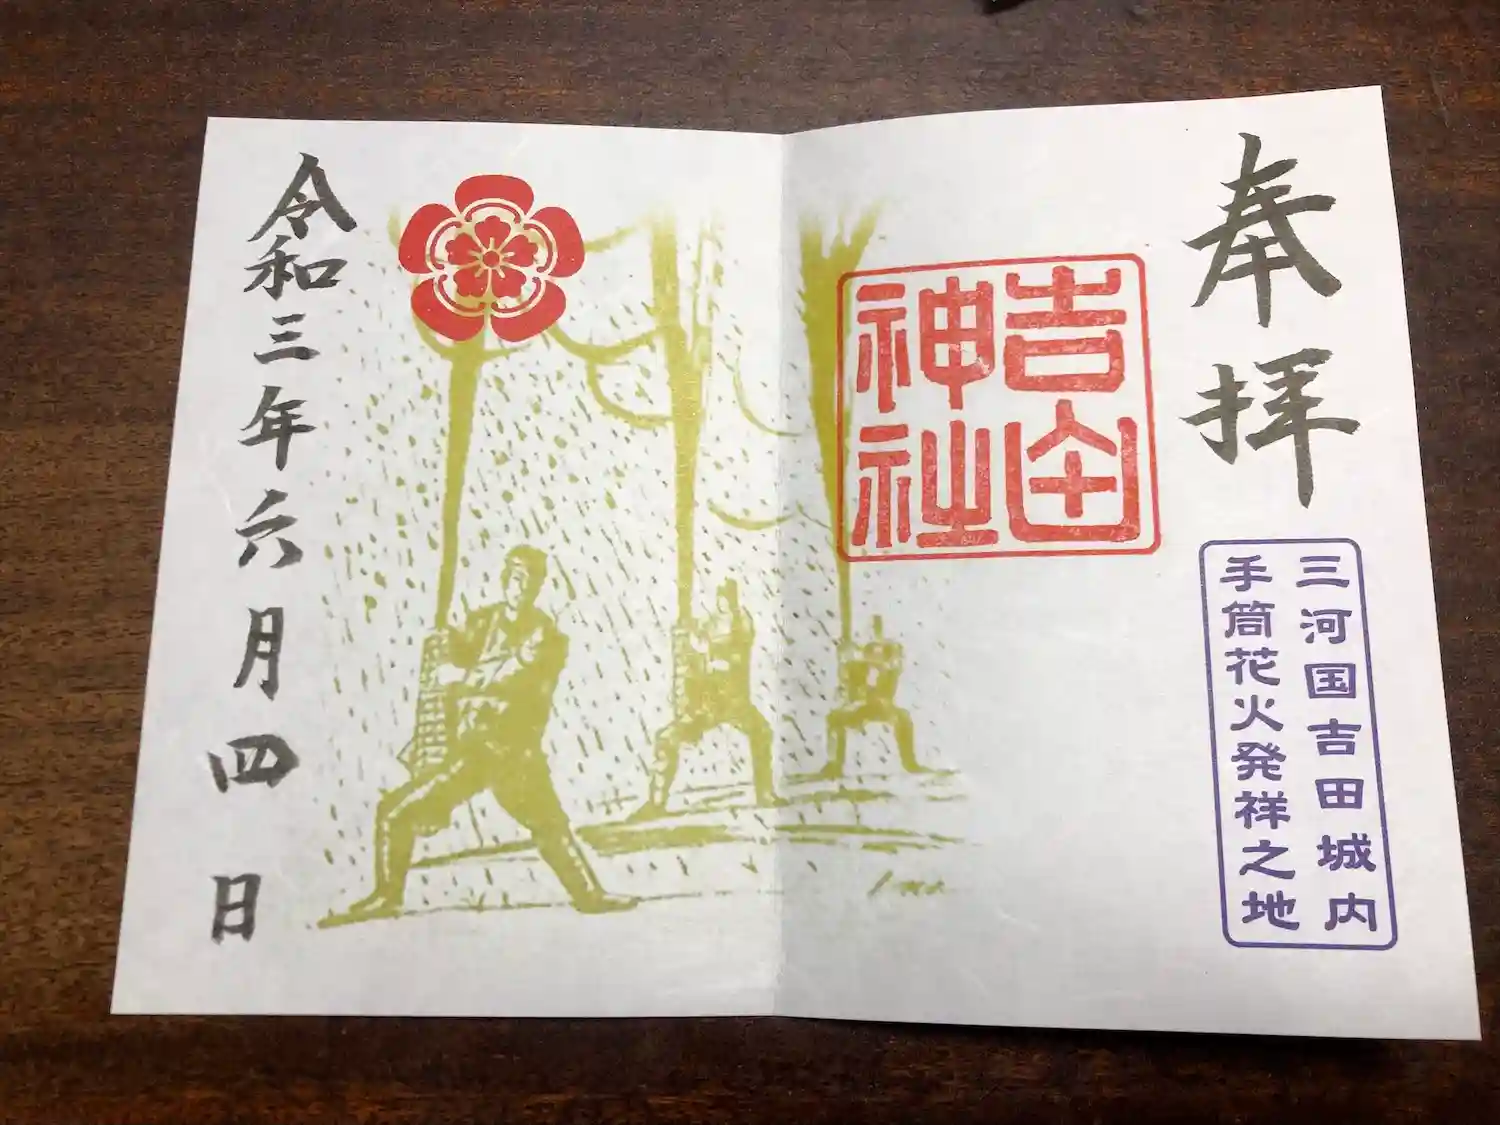 奉拝
三河国吉田城内
手筒花火発祥之地
吉田
神社
令和三年六月四日